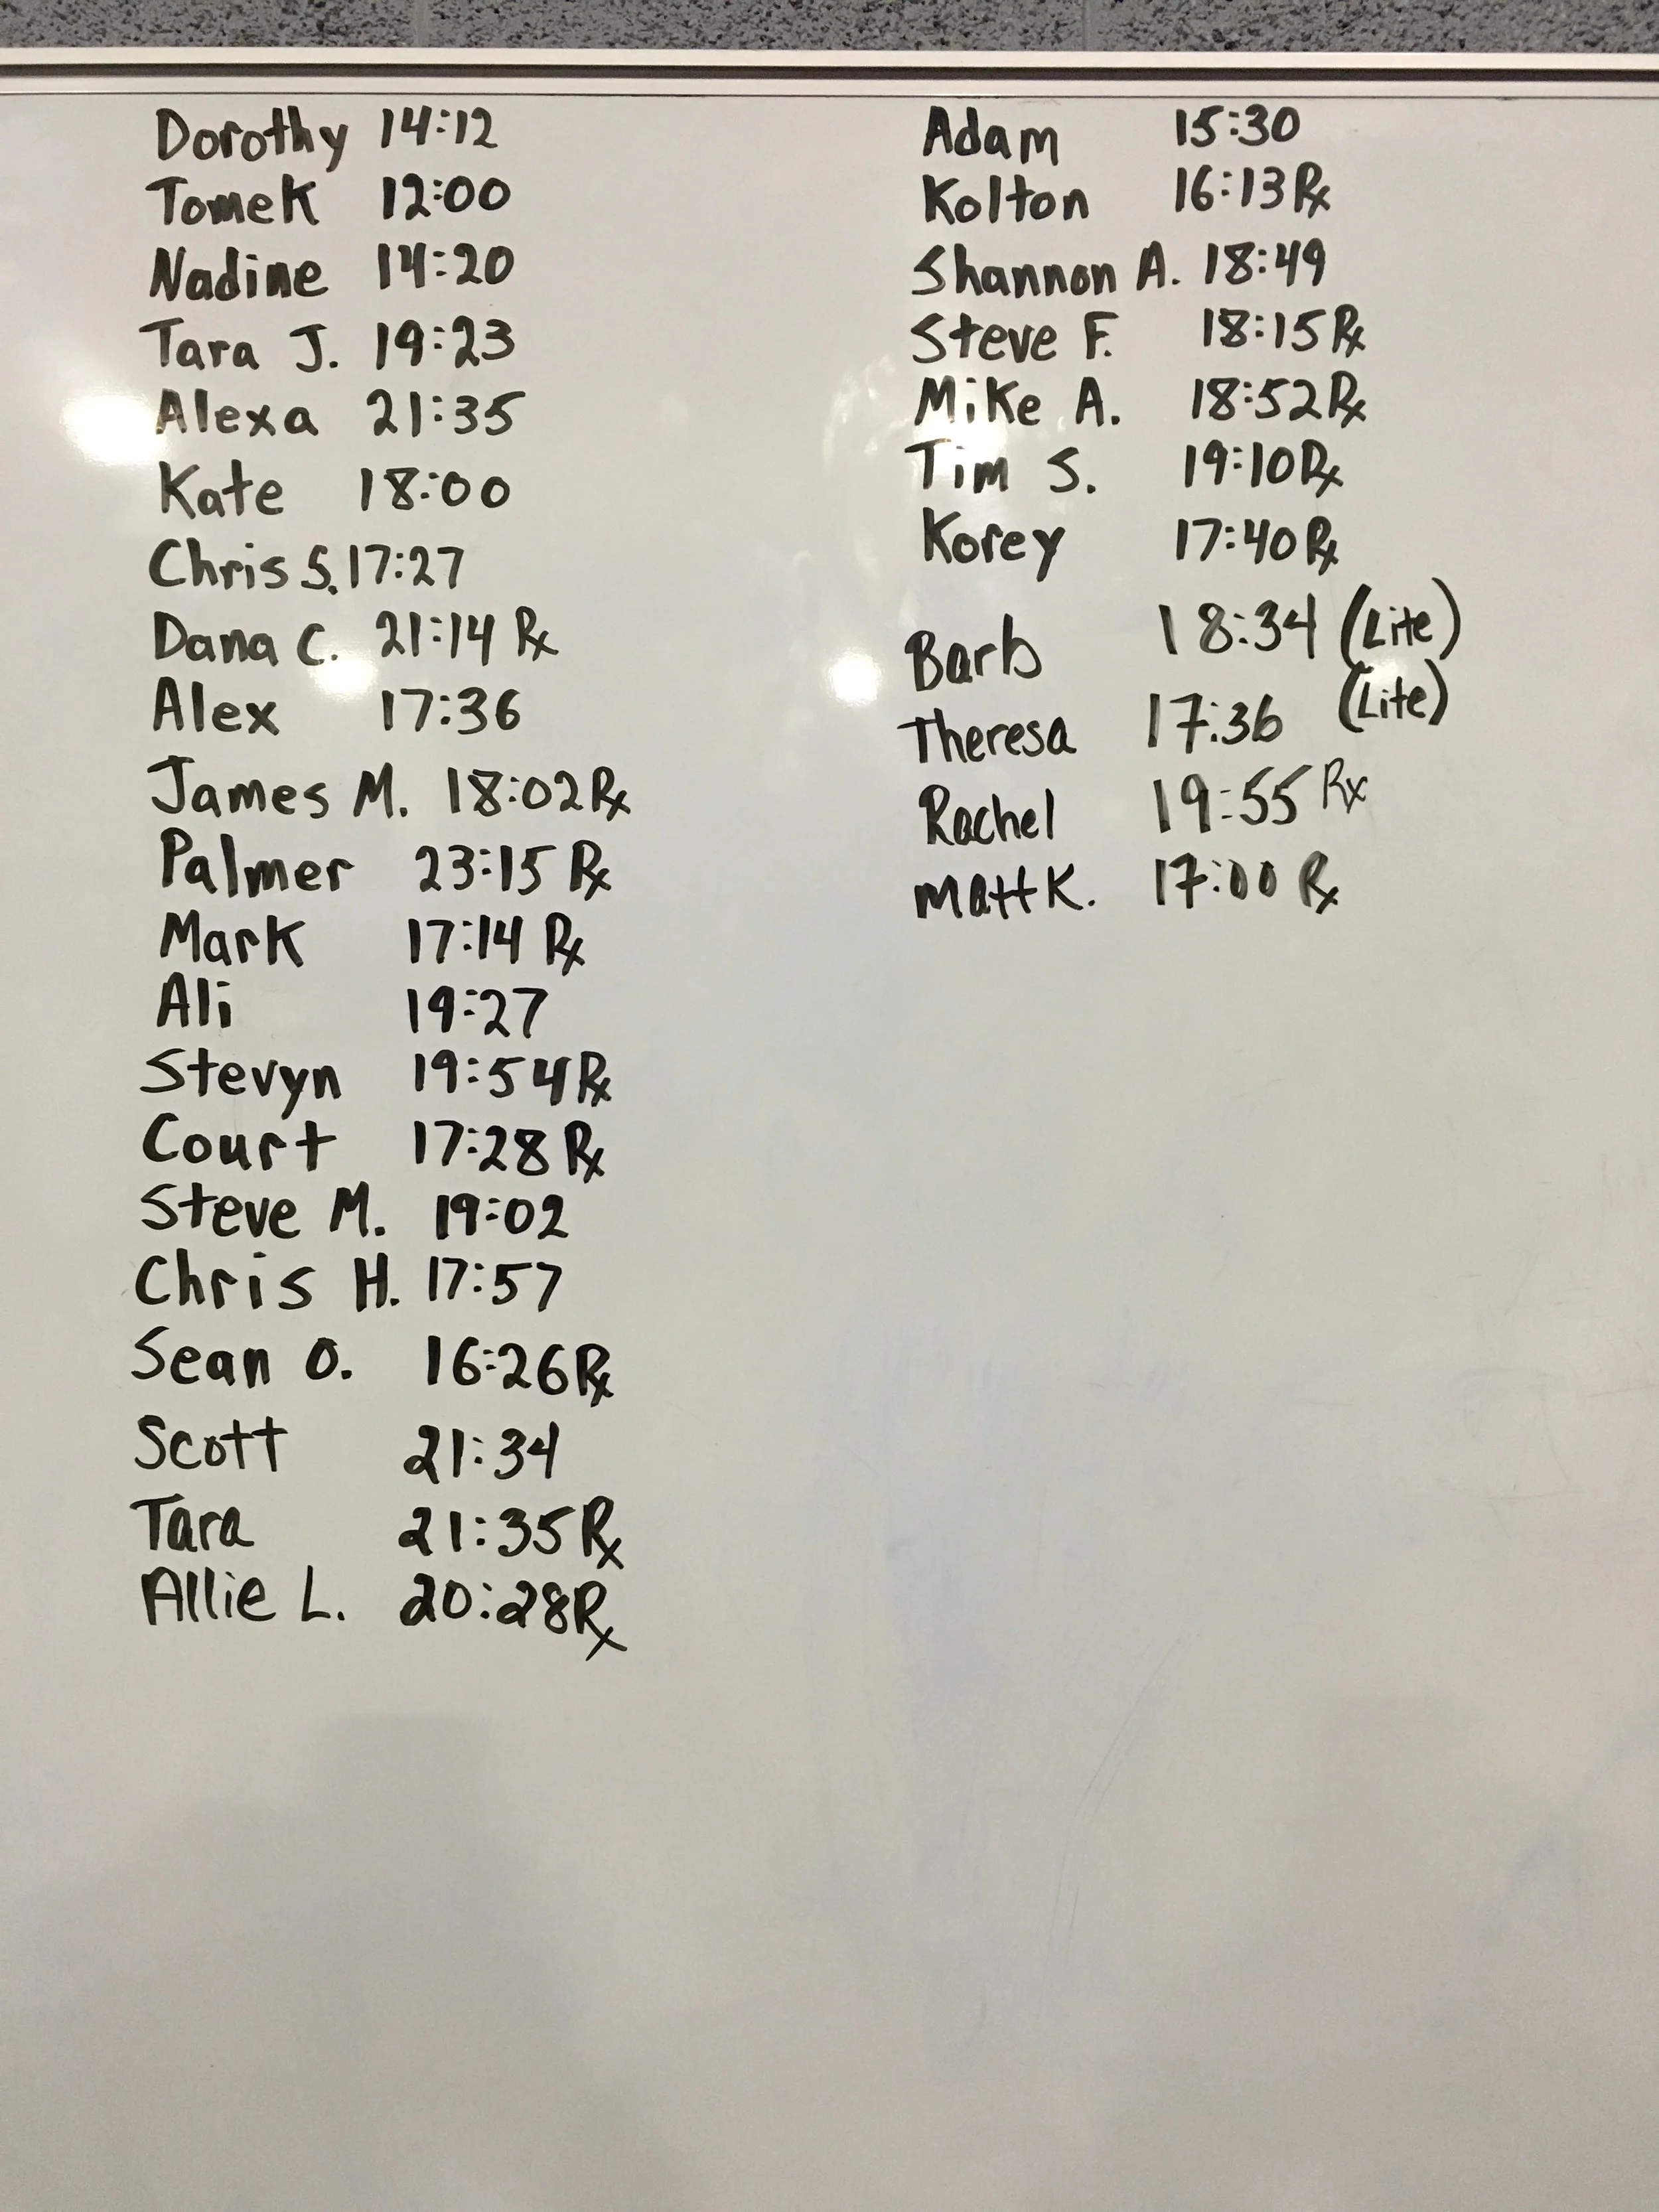 Dorothy 14:12
Tomek 12:00
Nadine 14:20
Tara J. 19:23
Alexa 21:35
Kate 18:00
Chris S. 17:27
Dana C. 21:14 Rx
Alex 17:36
James M. 18:02 Rx
Palmer 23:15 Rx
Mark 17:14 Rx
Ali 19:27
Stevyn 19:54 Rx
Court 17:28 Rx
Steve M. 19:02
Chris H. 17:57
Sean O. 16:26 Rx
Scott 21:34
Tara 21:35 Rx
Allie L. 20:28 Rx
Adam 15:30
Kolton 16:13 Rx
Shannon A. 18:49
Steve F. 18:15 Rx
Mike A. 18:52 Rx
Tim S. 19:10 Rx
Korey 17:40 Rx
Barb 18:34 (Lite)
Theresa 17:36 (Lite)
Rachel 19:55 Rx
Matt K. 17:00 Rx